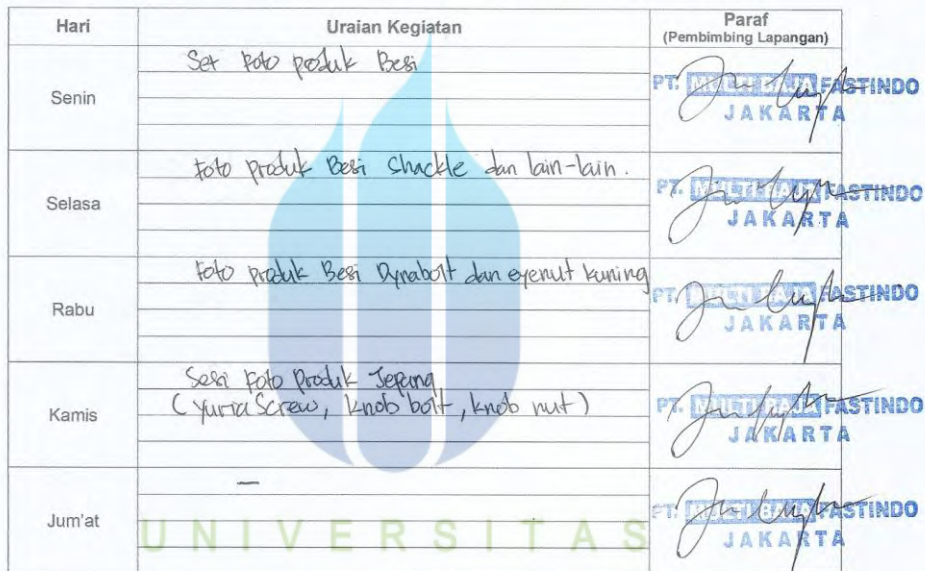 Hari
Uraian Kegiatan
Paraf
(Pembimbing Lapangan)
Senin
Set Foto produk Besi
PT. MULTI BAJA FASTINDO
JAKARTA
Selasa
Foto produk Besi Shackle dan lain-lain.
PT. MULTI BAJA FASTINDO
JAKARTA
Rabu
Foto produk Besi Dynabolt dan eyenut kuning
PT. MULTI BAJA FASTINDO
JAKARTA
Kamis
Sesi Foto Produk Jepang
(Yuria Screw, knob bolt, knob nut)
PT. MULTI BAJA FASTINDO
JAKARTA
Jum'at
—
PT. MULTI BAJA FASTINDO
JAKARTA
UNIVERSITAS